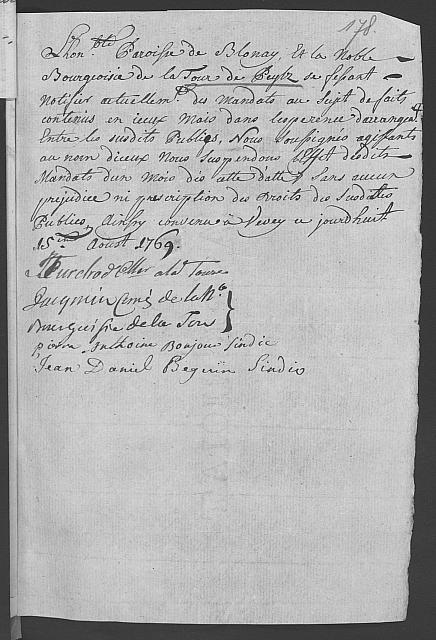 178.
L'hon.ble Paroisse de Blonay, Et la Noble
Bourgeoisie de la Tour de Peylz se fesant
Notifier actuellem.t des Mandats au Sujet de faits
contenus en iceux Mais dans lesperence darrangem.t
Entre les susdits Publics, Nous Soussignés agissants
au nom diceux Nous Suspendons l'Effet desdits
Mandats dun Mois dès cette datte Sans aucun
prejudice ni prescription des Droits des Susdits
Publics, Ainsy convenu à Vevey ce jourdhuit
15.me Aoust 1769.
à la Tour
Comis de la N.ble
Bourguisie de la Tour
pierre Anthoine Bonjour Sindic
Jean Daniel Beguin Sindic